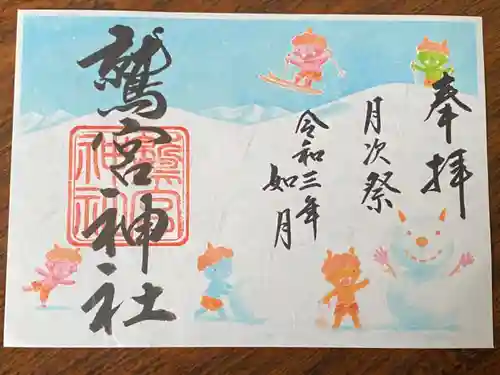 奉拝
月次祭
令和三年
如月
鷲宮神社
鷲宮神社